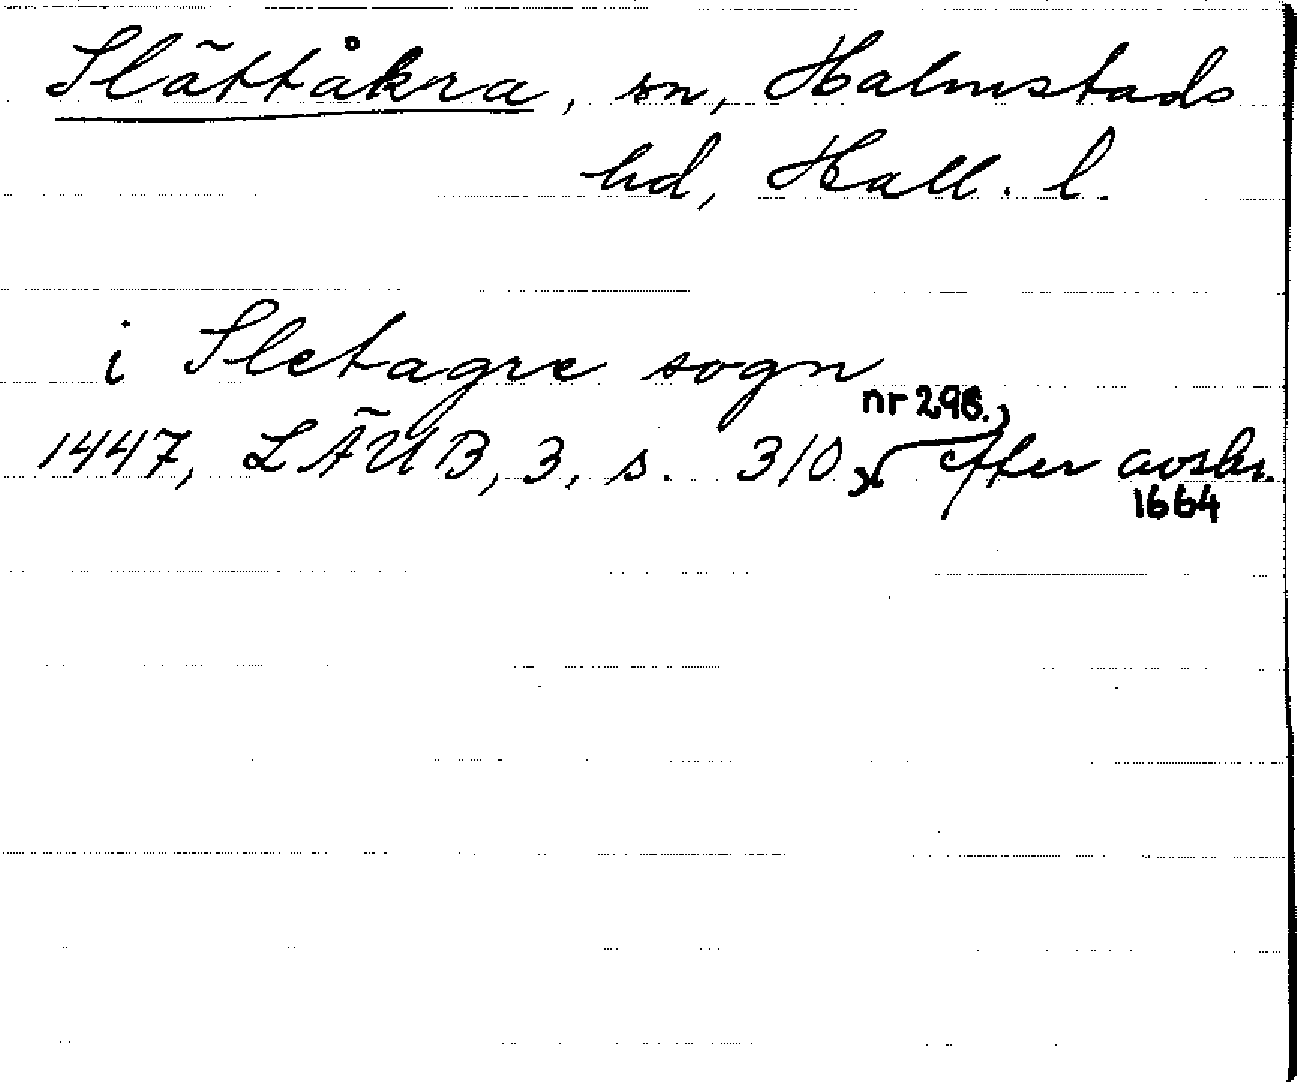 Slättåkra, sn, Halmstads
hd, Hall. l.
i Sletagre sogn
nr 298.,
1447, LÄUB, 3, s. 310, efter avskr.
1664